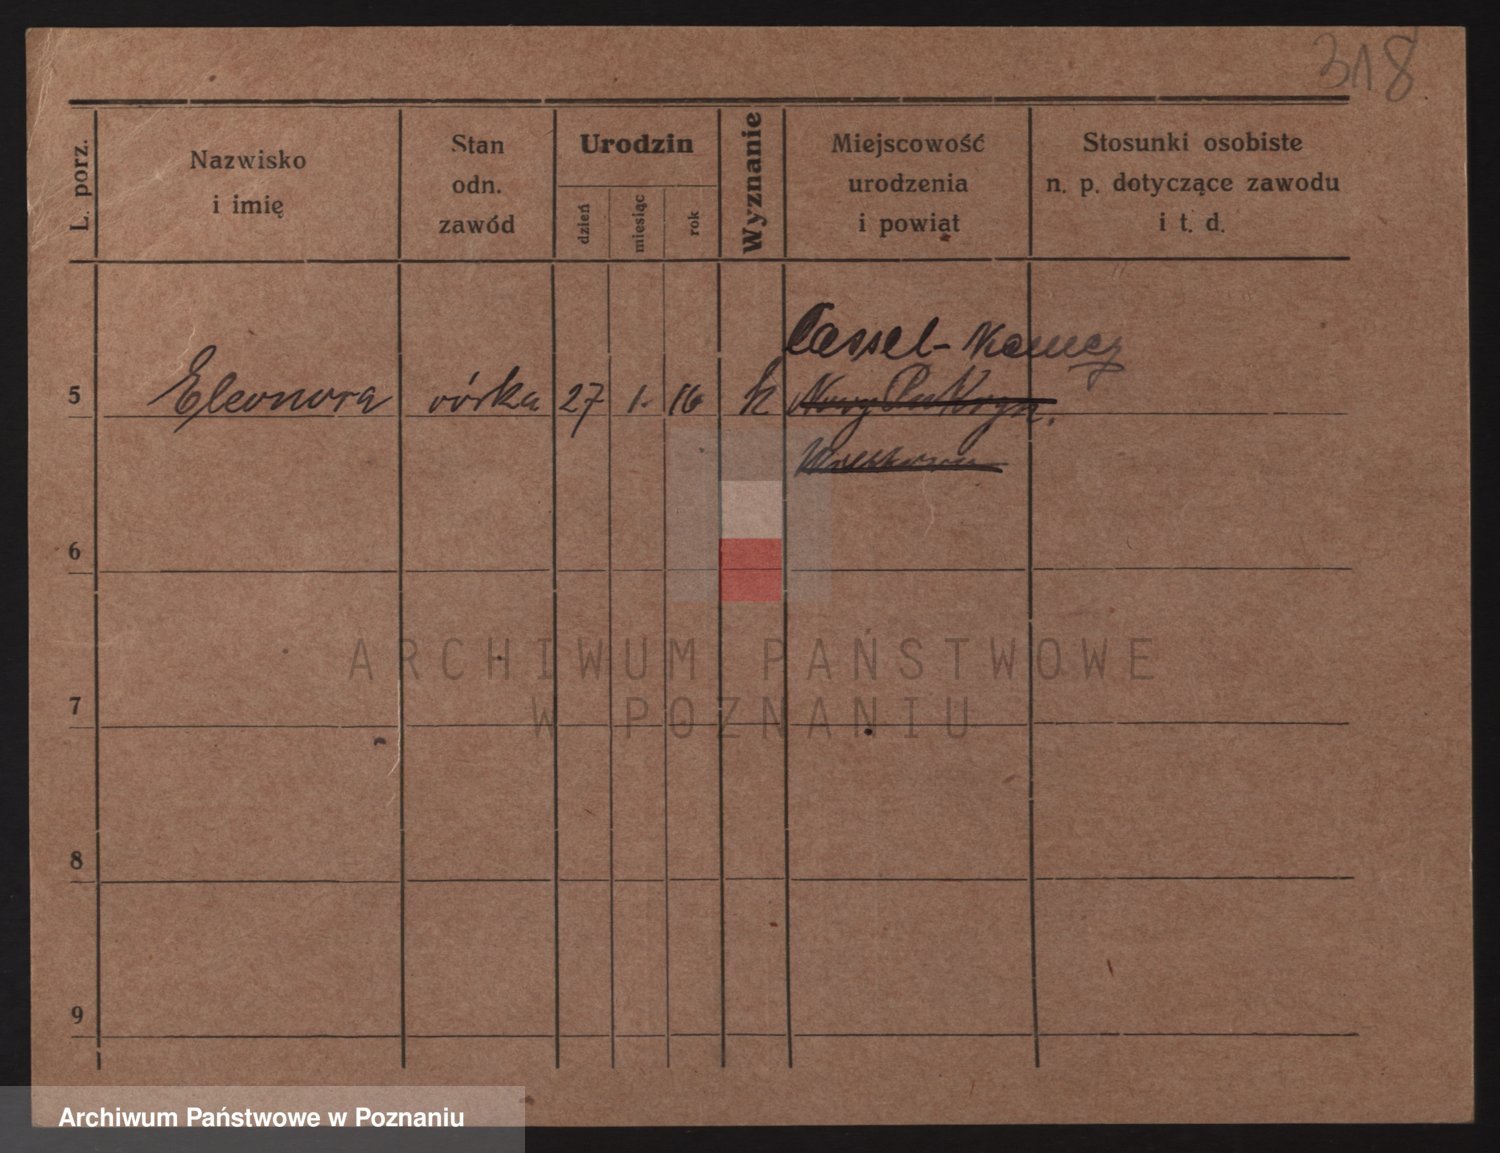 318
L. porz.
Nazwisko
i imię
Stan
odn.
zawód
Urodzin
dzień
miesiąc
rok
Wyznanie
Miejscowość
urodzenia
i powiat
Stosunki osobiste
n. p. dotyczące zawodu
i t. d.
Cassel-
5 Eleonora córka 27 1. 16 k
6
ARCHIWUM PAŃSTWOWE
W POZNANIU
7
8
9
Archiwum Państwowe w Poznaniu